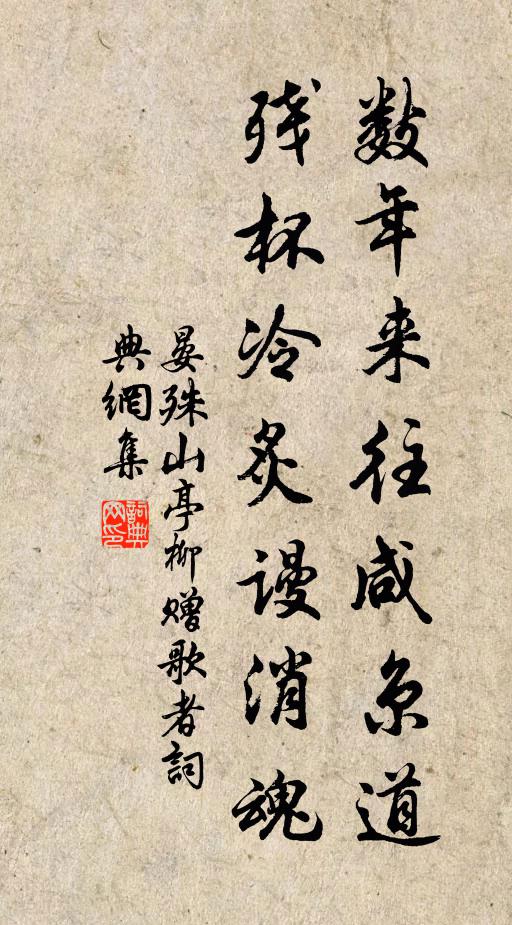 数年来往咸京道
残杯冷炙谩消魂
晏殊山亭柳赠歌者詞
典網集
詞典网印